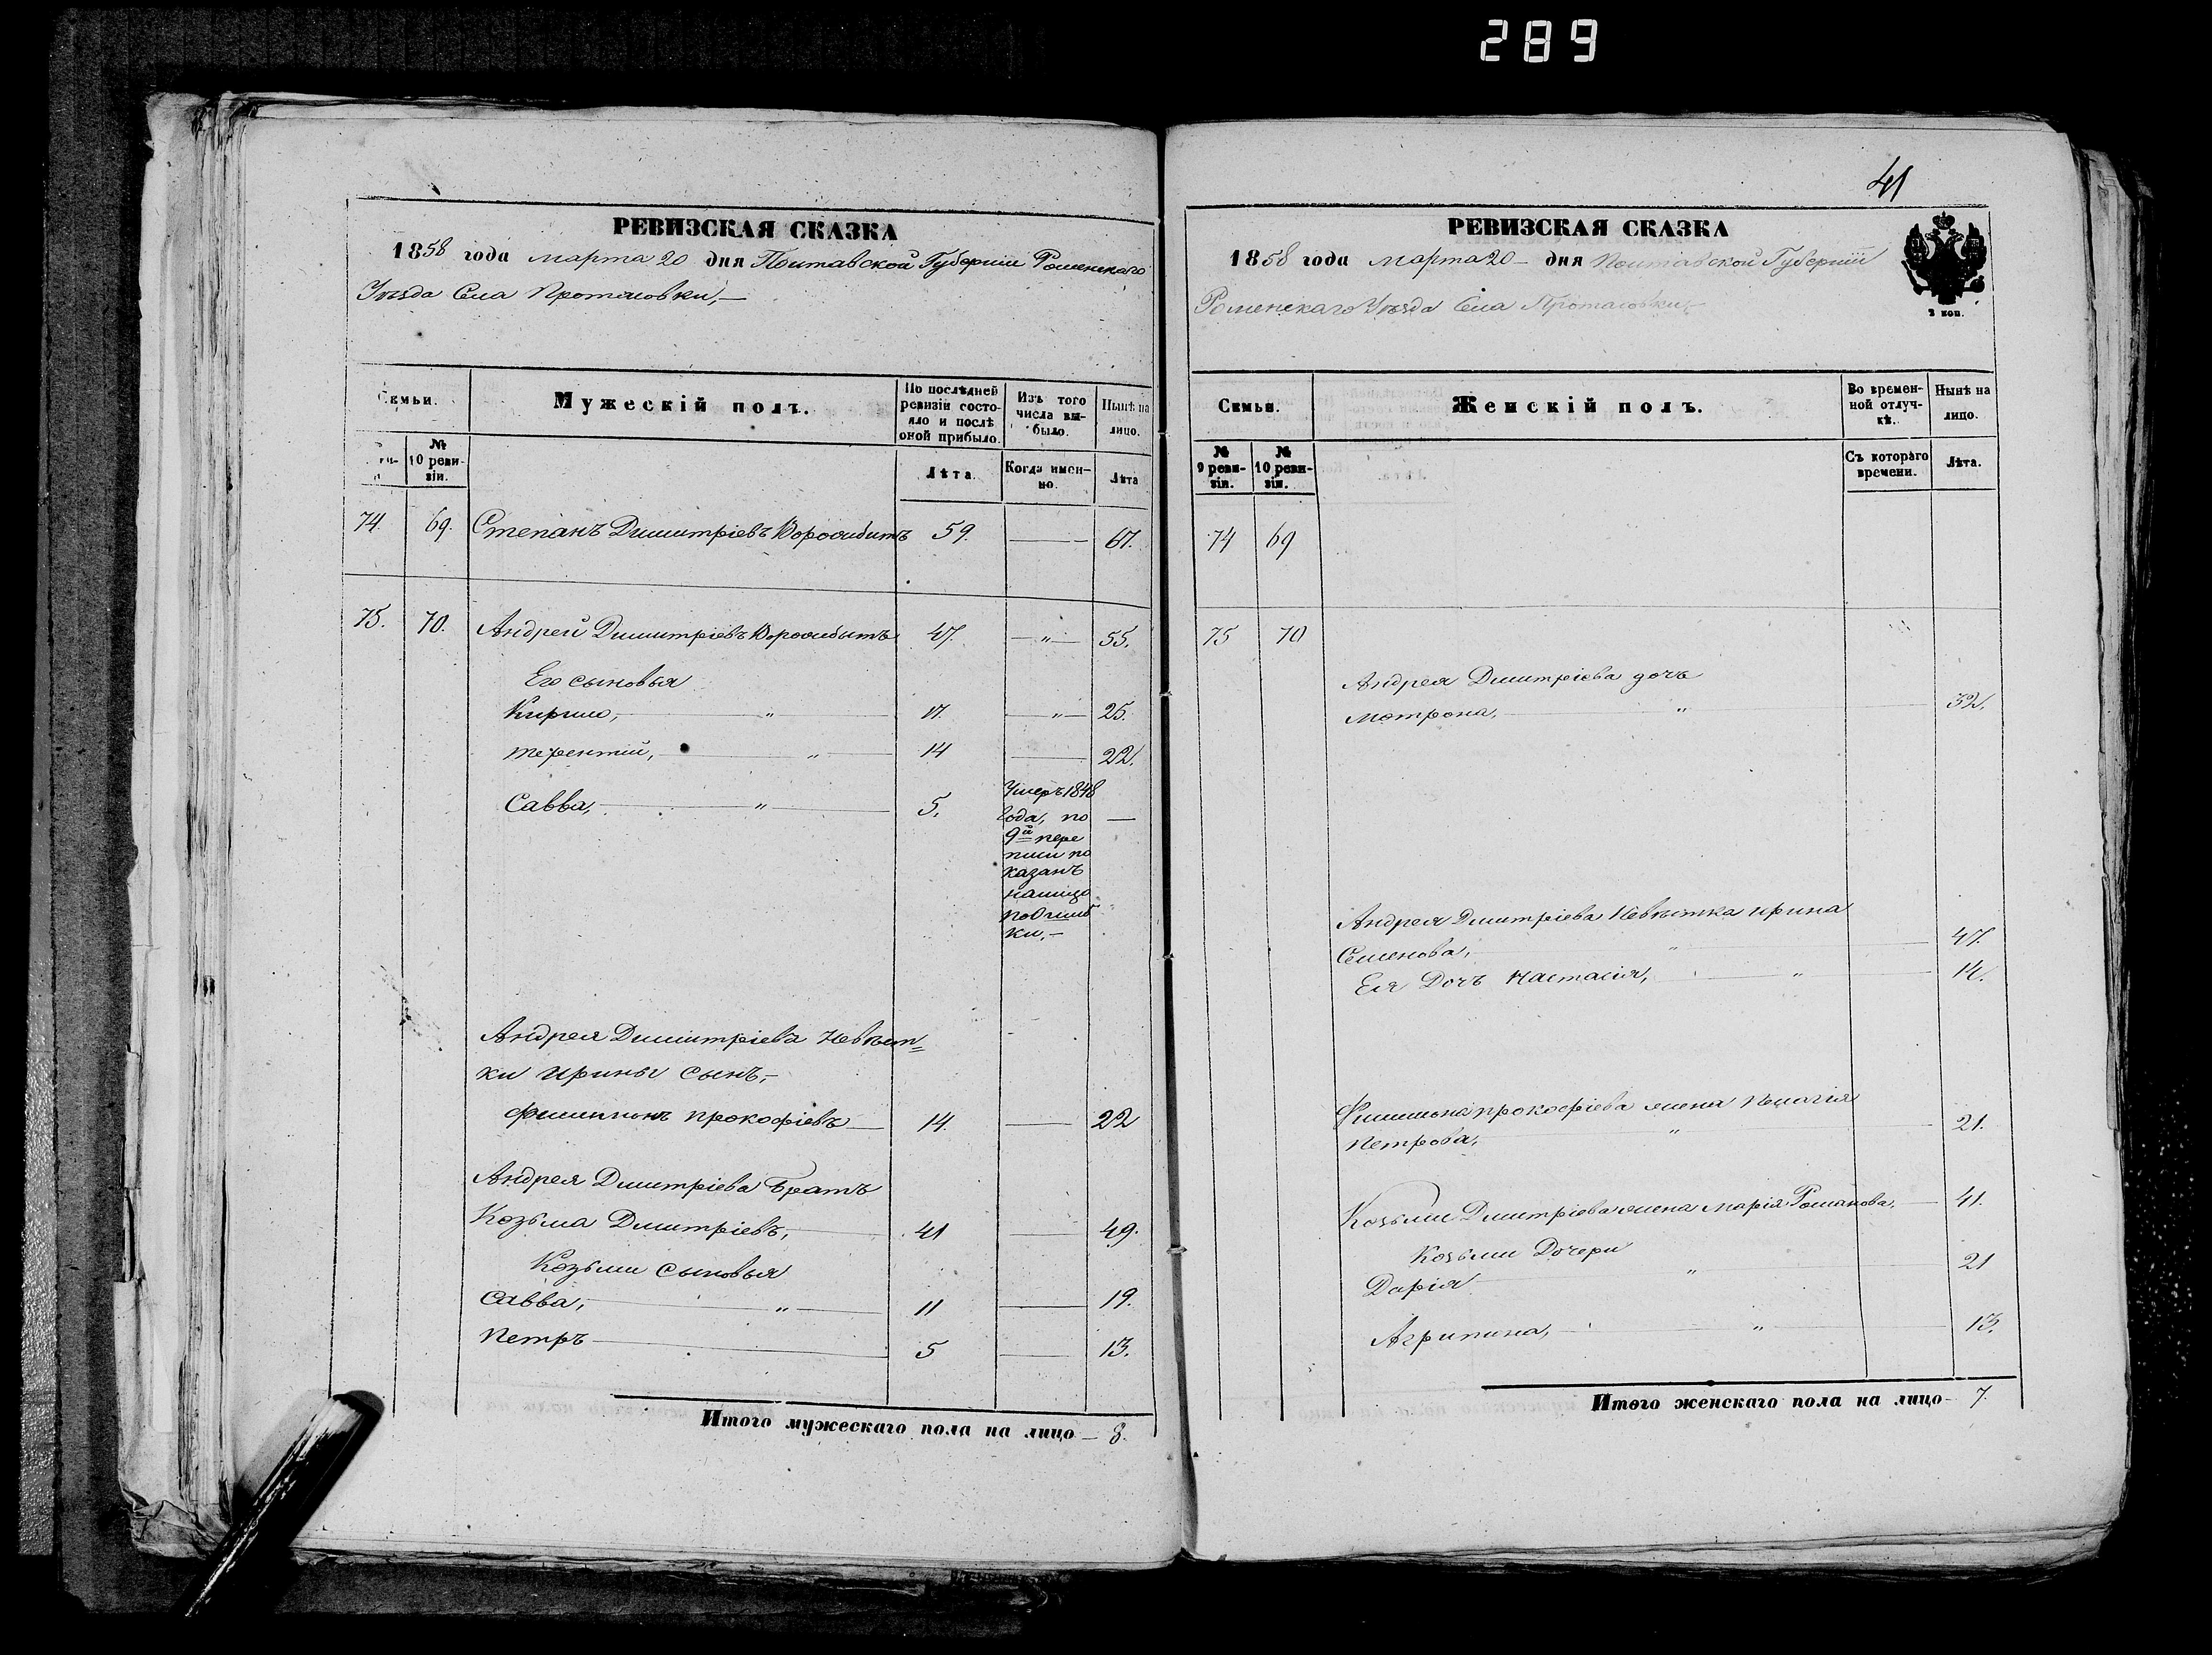 289
РЕВИЗСКАЯ СКАЗКА
1858 года марта 20 дня Полтавской Губерніи Роменскаго
Уѣзда Села Протасовки,—
Семьи.
Мужескій полъ.
По послѣдней ревизіи состояло и послѣ оной прибыло.
Изъ того числа выбыло.
Нынѣ на лицо.
№ 10 ревизіи.
Лѣта.
Когда именно.
Лѣта
74. 69. Степанъ Димитріевъ 59. — 67.
75. 70. Андрей Димитріевъ 47. —„— 55.
Его сыновья
Кирило, „ 17. —„— 25.
Терентій, „ 14 — 22.
Савва, „ 5.
Умеръ 1848
года, по —
9й пере
писи по
казанъ
налицо
по ошиб
ки,—
Андрея Димитріева Невѣст=
ки Ирины сынъ,—
Филимонъ Прокофіевъ — 14. — 22
Андрея Димитріева Братъ
Козьма Димитріевъ, 41 — 49.
Козьми сыновья
Савва, „ 11 — 19.
Петръ — 5 — 13.
Итого мужескаго пола на лицо — 8.
41
РЕВИЗСКАЯ СКАЗКА
1858 года марта 20 — дня Полтавской Губерніи
Роменскаго Уѣзда Села Протасовки,—
2 коп.
Семьи.
Женскій полъ.
Во временной отлучкѣ.
Нынѣ на лицо.
№ 9 ревизіи.
№ 10 ревизіи.
Съ котораго времени.
Лѣта.
74 69
75 70
Андрея Димитріева дочь
Мотрона, „ 32.
Андрея Димитріева Невѣстка Ирина
Семенова, „ 47.
Ея Дочь Настасія, „ 14.
Филимона Прокофіева жена Пелагія
Петрова, „ 21.
Козьми Димитріева жена Марія Романова, — 41.
Козьми Дочери
Дарія „ 21
Агрипина, „ 13.
Итого женскаго пола на лицо — 7.